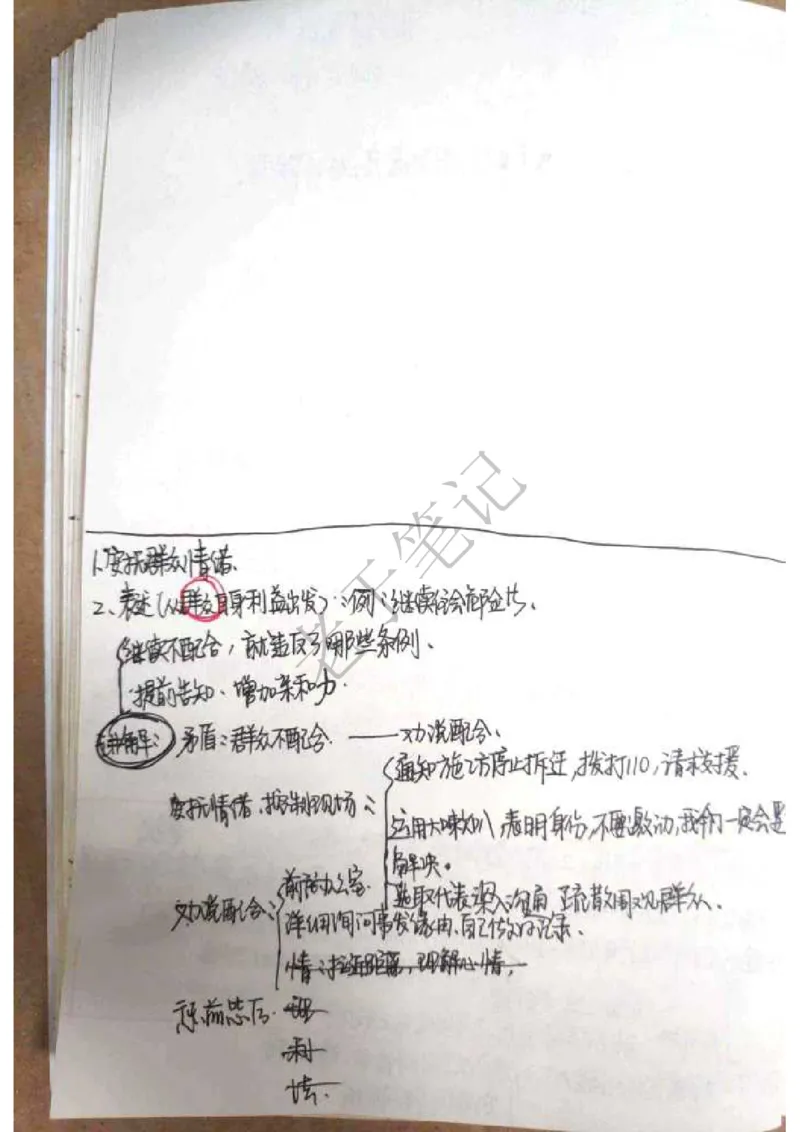 1.安抚群众情绪.
2、表述(从群众自身利益出发):例:继续住会有危险.
继续不配合,就违反了哪些条例.
提前告知、增加亲和力.
讲解: 矛盾:群众不配合. ——劝说配合.
通知施工方停止拆迁,拨打110,请求支援.
安抚情绪.控制现场:
运用大喇叭,表明身份,不要激动,我们一定会
解决。
选取代表深入沟通,疏散围观群众.
劝说配合: 前往办公室.
详细询问事发缘由.自己做好记录.
情:拉近距离,理解心情,
惩前毖后. 理
利
法.
老于笔记